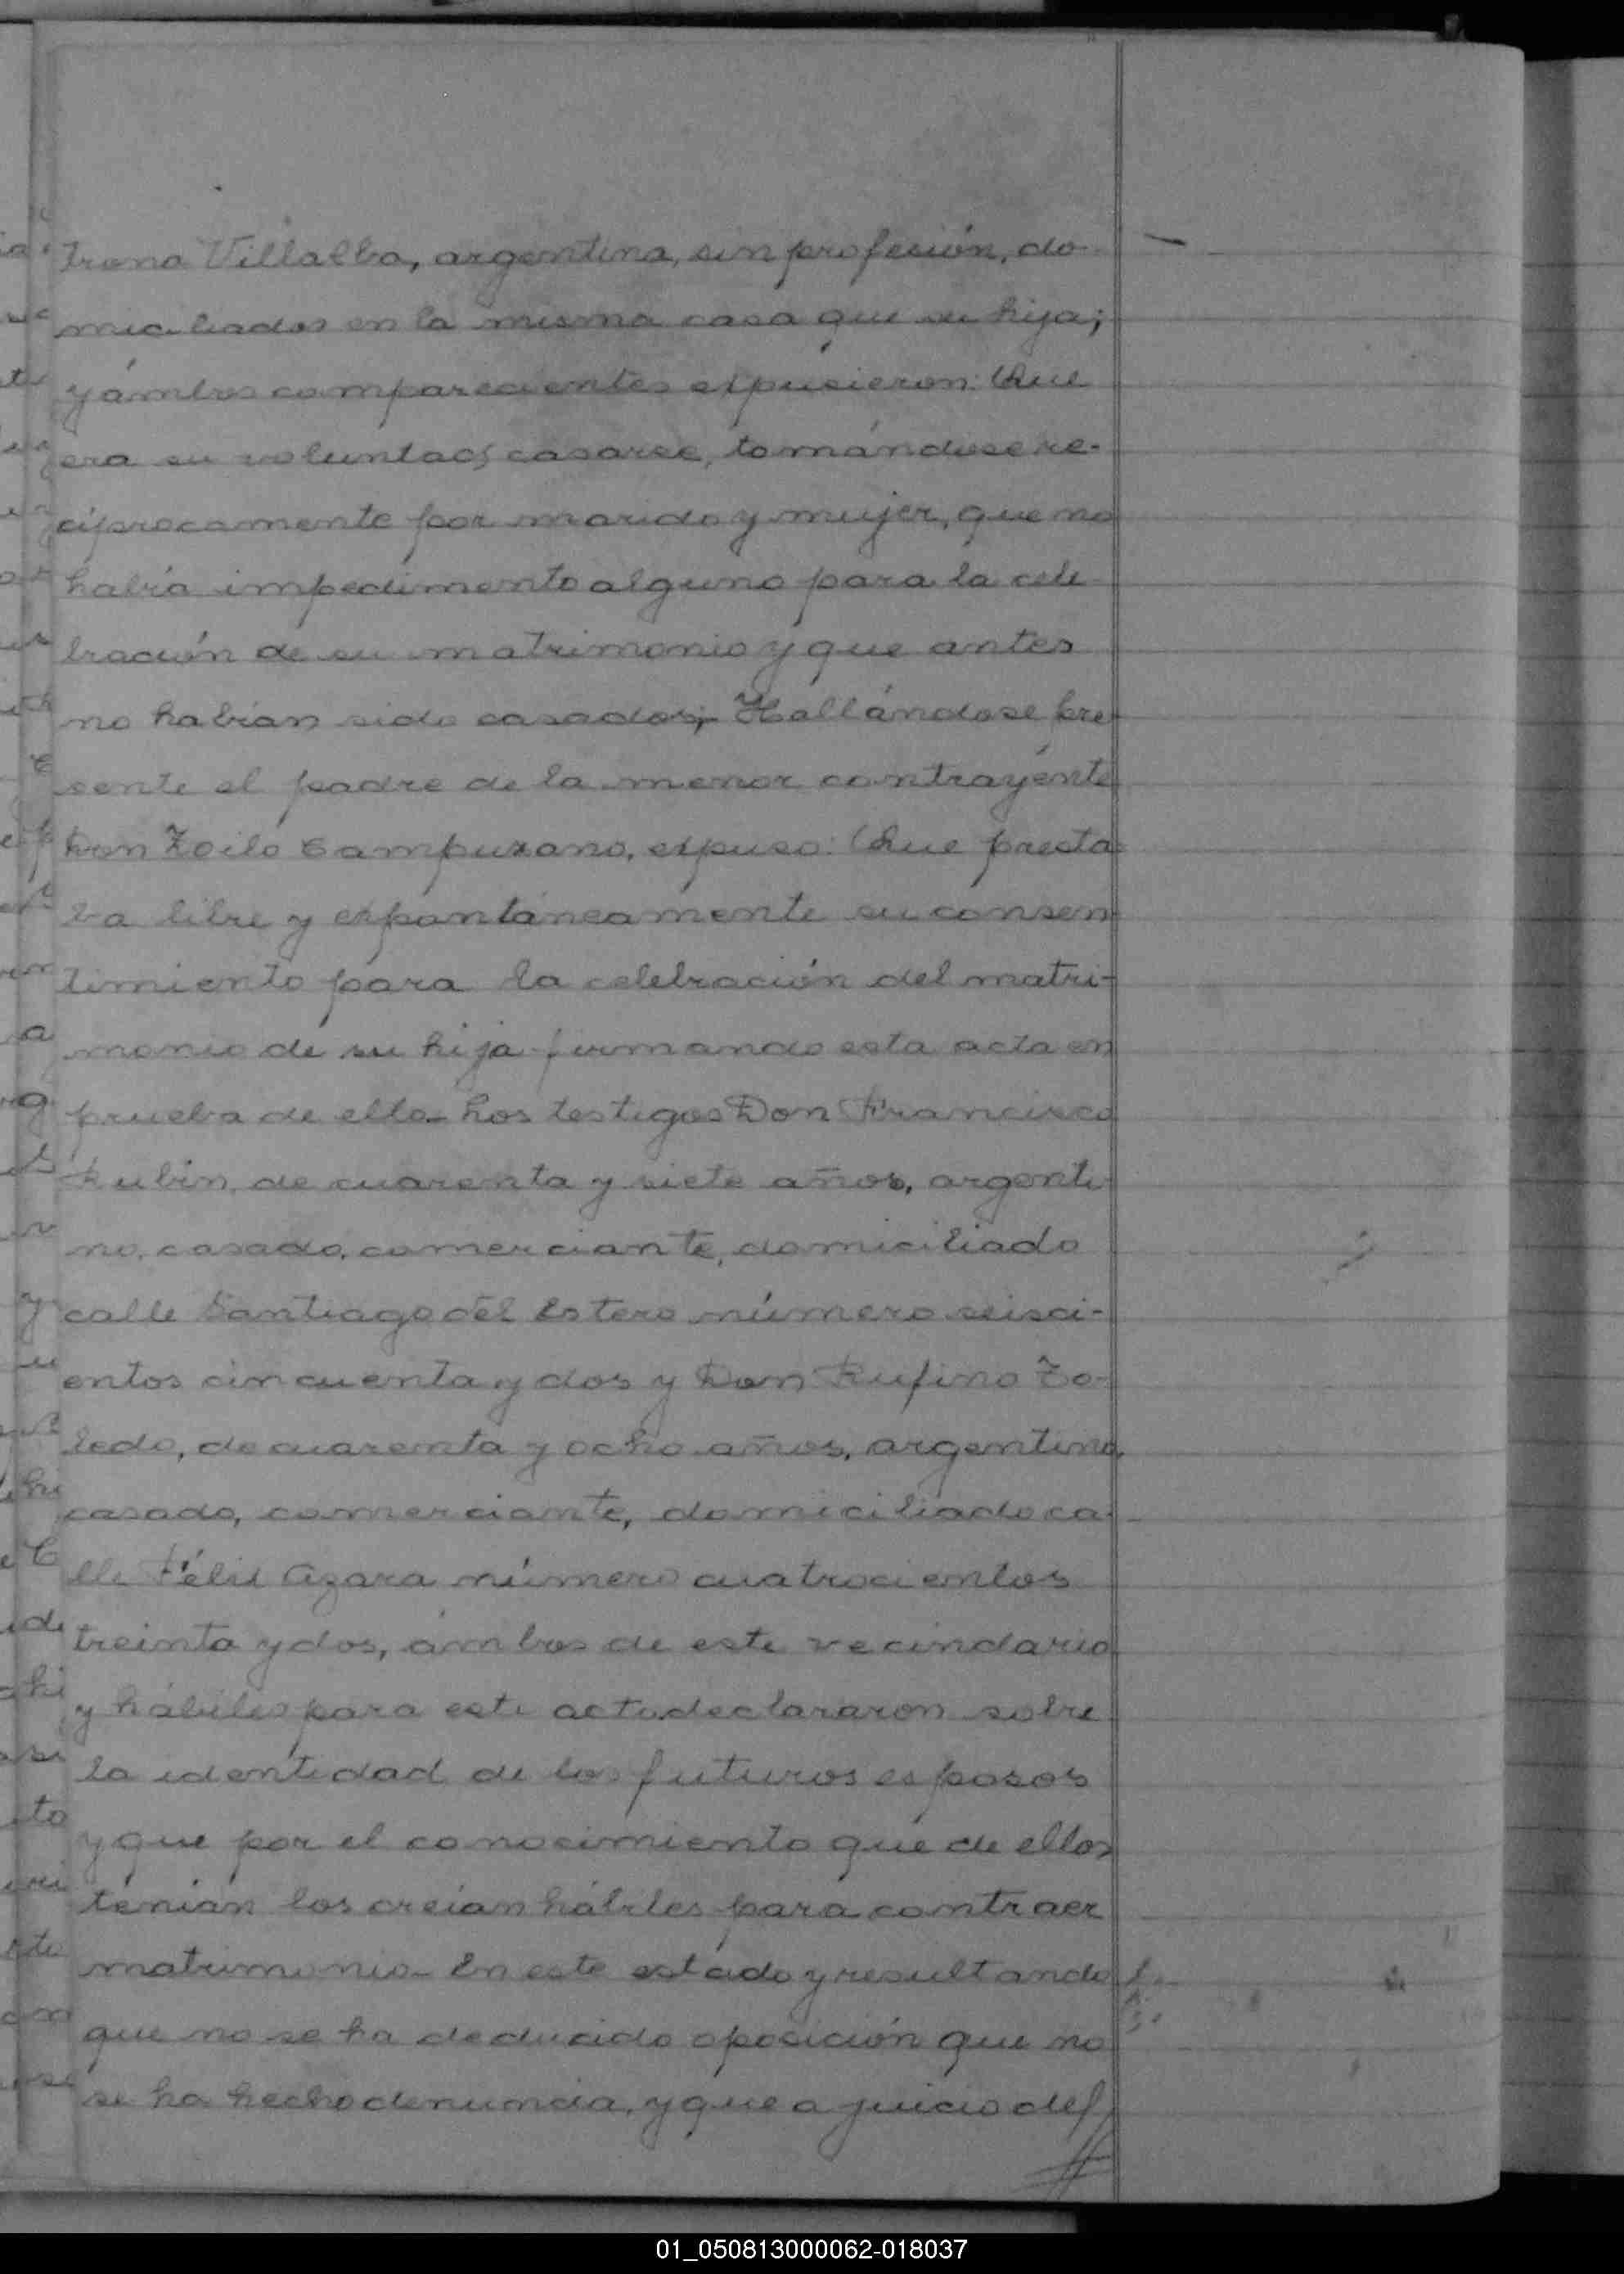 Irena Villalba, argentina, sin profesión, do-
miciliados en la misma casa que su hija;
y ámbos comparecientes expusieron: Que
era su voluntad casarse, tomándose re-
ciprocamente por marido y mujer, que no
había impedimento alguno para la cele-
bración de su matrimonio y que antes
no habían sido casados;- Hallándose pre-
sente el padre de la menor contrayente
Don Zoilo Campuzano, expuso: Que presta-
ba libre y expontáneamente su consen-
timiento para la celebración del matri-
monio de su hija firmando esta acta en
prueba de ello.- Los testigos Don Francisco
Rubin, de cuarenta y siete años, argenti-
no, casado, comerciante, domiciliado
calle Santiago del Estero número seisci-
entos cincuenta y dos y Don Rufino To-
ledo, de cuarenta y ocho años, argentino,
casado, comerciante, domiciliado ca-
lle Félix Azara número cuatrocientos
treinta y dos, ámbos de este vecindario
y hábiles para este acto, declararon sobre
la identidad de los futuros esposos
y que por el conocimiento que de ellos
tenían los creían hábiles para contraer
matrimonio.- En este estado y resultando
que no se ha deducido oposición que no
se ha hecho denuncia, y que a juicio del
01_050813000062-018037